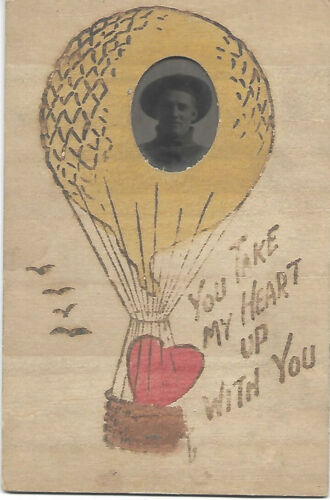 YOU TAKE
MY HEART
UP
WITH YOU